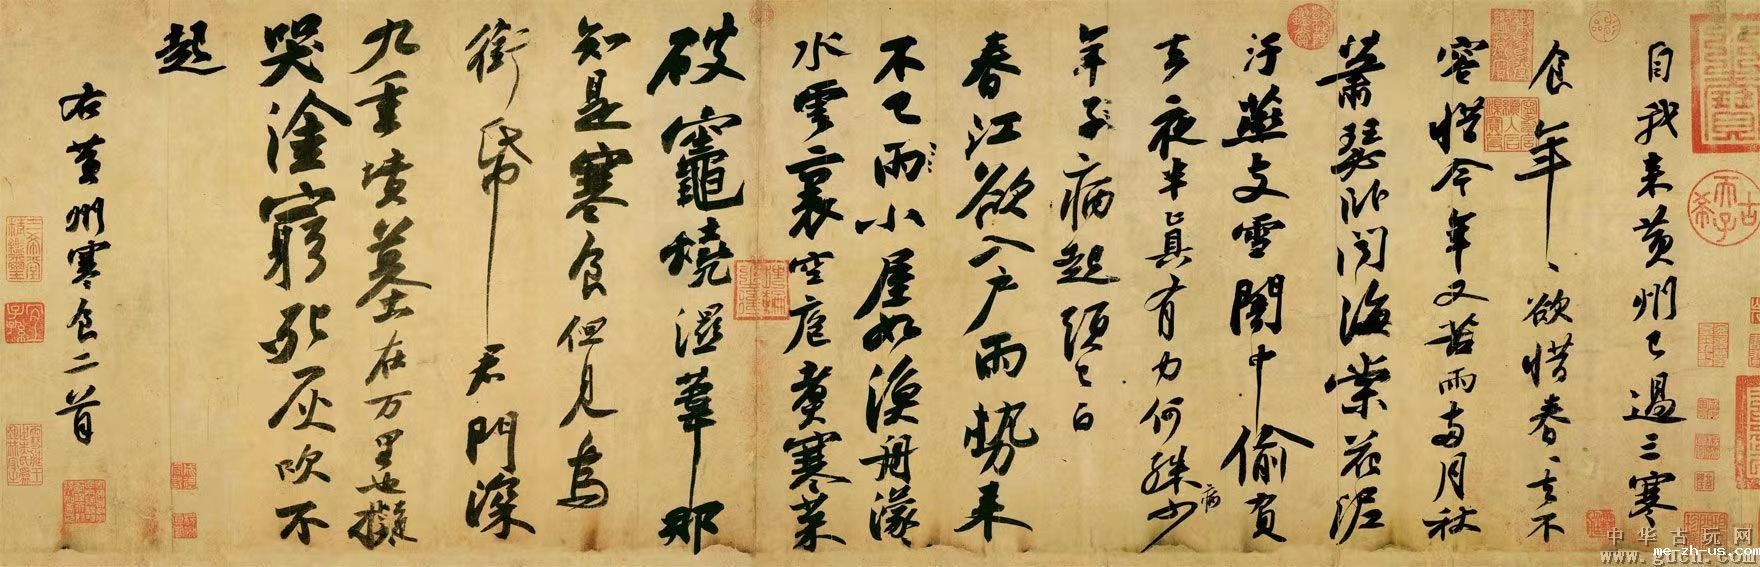 自我来黄州已過三寒
食年、欲惜春、去不
容惜今年又苦雨兩月秋
蕭瑟卧聞海棠花泥
汙燕支雪闇中偷負
去夜半真有力何殊少
病
年子病起頭已白
春江欲入戶雨勢来
不已雨小屋如漁舟濛
水雲裏空庖煮寒菜
破竈燒濕葦那
知是寒食但見烏
銜帋君門深
九重墳墓在万里也擬
哭塗窮死灰吹不
起
右黄州寒食二首
古希天子
中华古玩网
me-zh-us.com
www.gucn.com